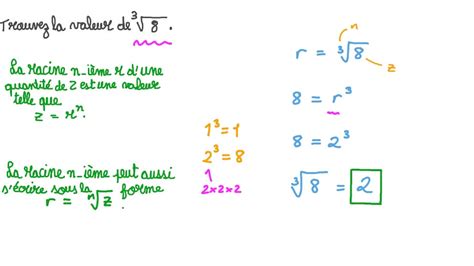 Trouvez la valeur de ³√8.
La racine n-ième r d'une
quantité de z est une valeur
telle que
z = rⁿ.
La racine n-ième peut aussi
s'écrire sous la forme
r = ⁿ√z.
1³ = 1
2³ = 8
2×2×2
n
r = ³√8
z
8 = r³
8 = 2³
³√8 = 2